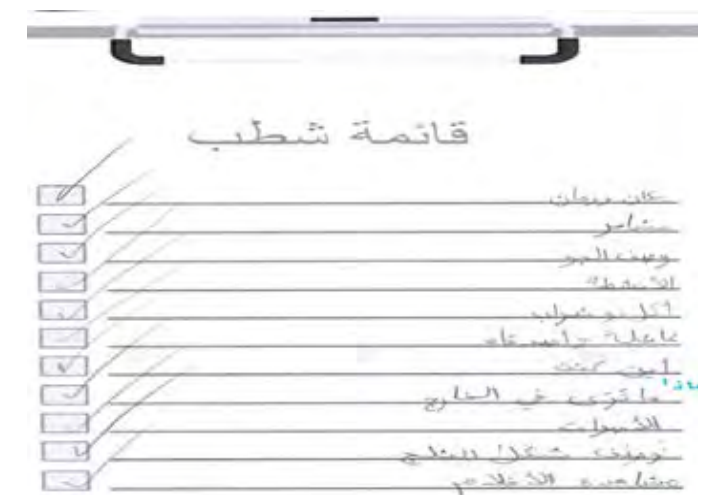 قائمة شطب
مشاعر
وصف الجو
الأنشطة
أكل و شراب
عائلة وأصدقاء
أين كنت
ما ترى في الخارج
الأصوات
توصف شكل الثلج
مشاهدة الأفلام